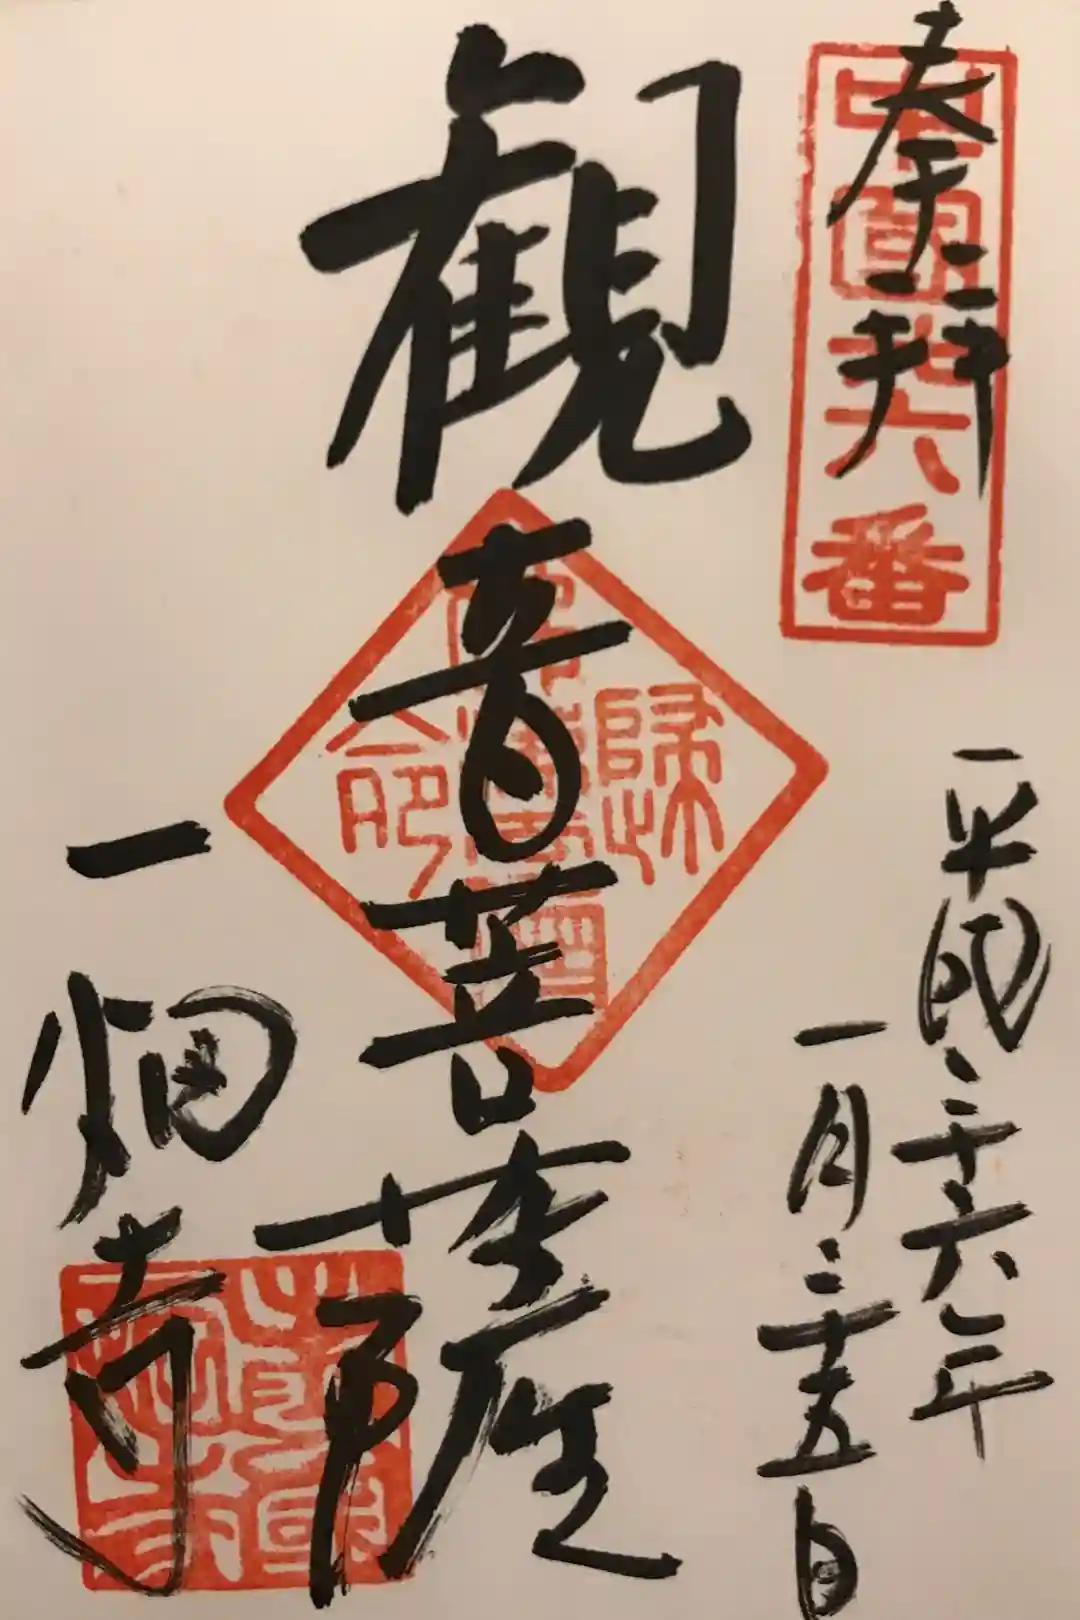 奉拝
中国廿六番
平成二十六年
一月二十五日
観音菩薩
歸命
一畑寺